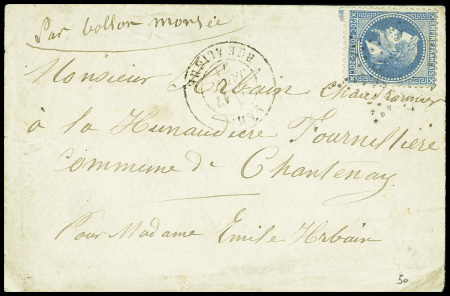 Par ballon monté
Monsieur Urbain
à la Hunaudière Fournillière
Commune de Chantenay
Pour Madame Emile Urbain
50